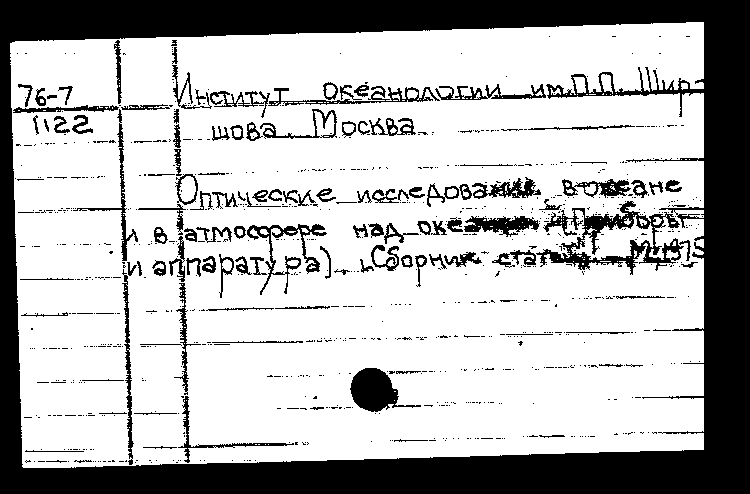 76-7 Институт океанологии им.П.П. Шир-
1122 шова. Москва.
Оптические исследования в океане
и в атмосфере над океаном. (Приборы
и аппаратура). Сборник статей. М. 1975